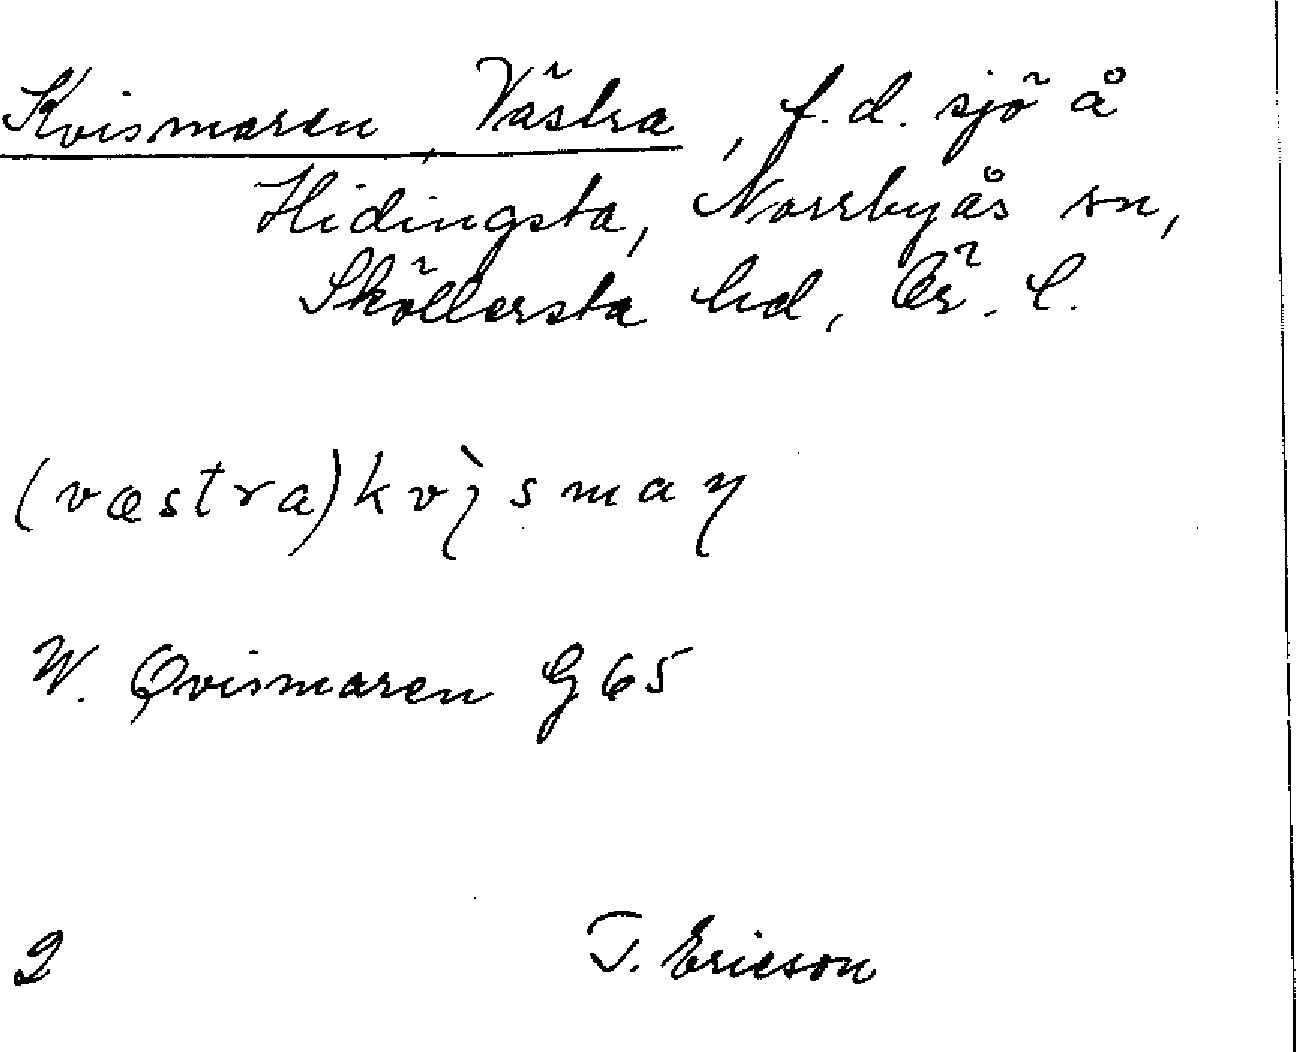 Kvismaren, Västra, f.d. sjö å
Hidingsta, Norrbyås sn,
Sköllersta hd, Ör. l.
(væstra)kvìsmaɳ
W. Qvismaren G 65
2 T. Ericson